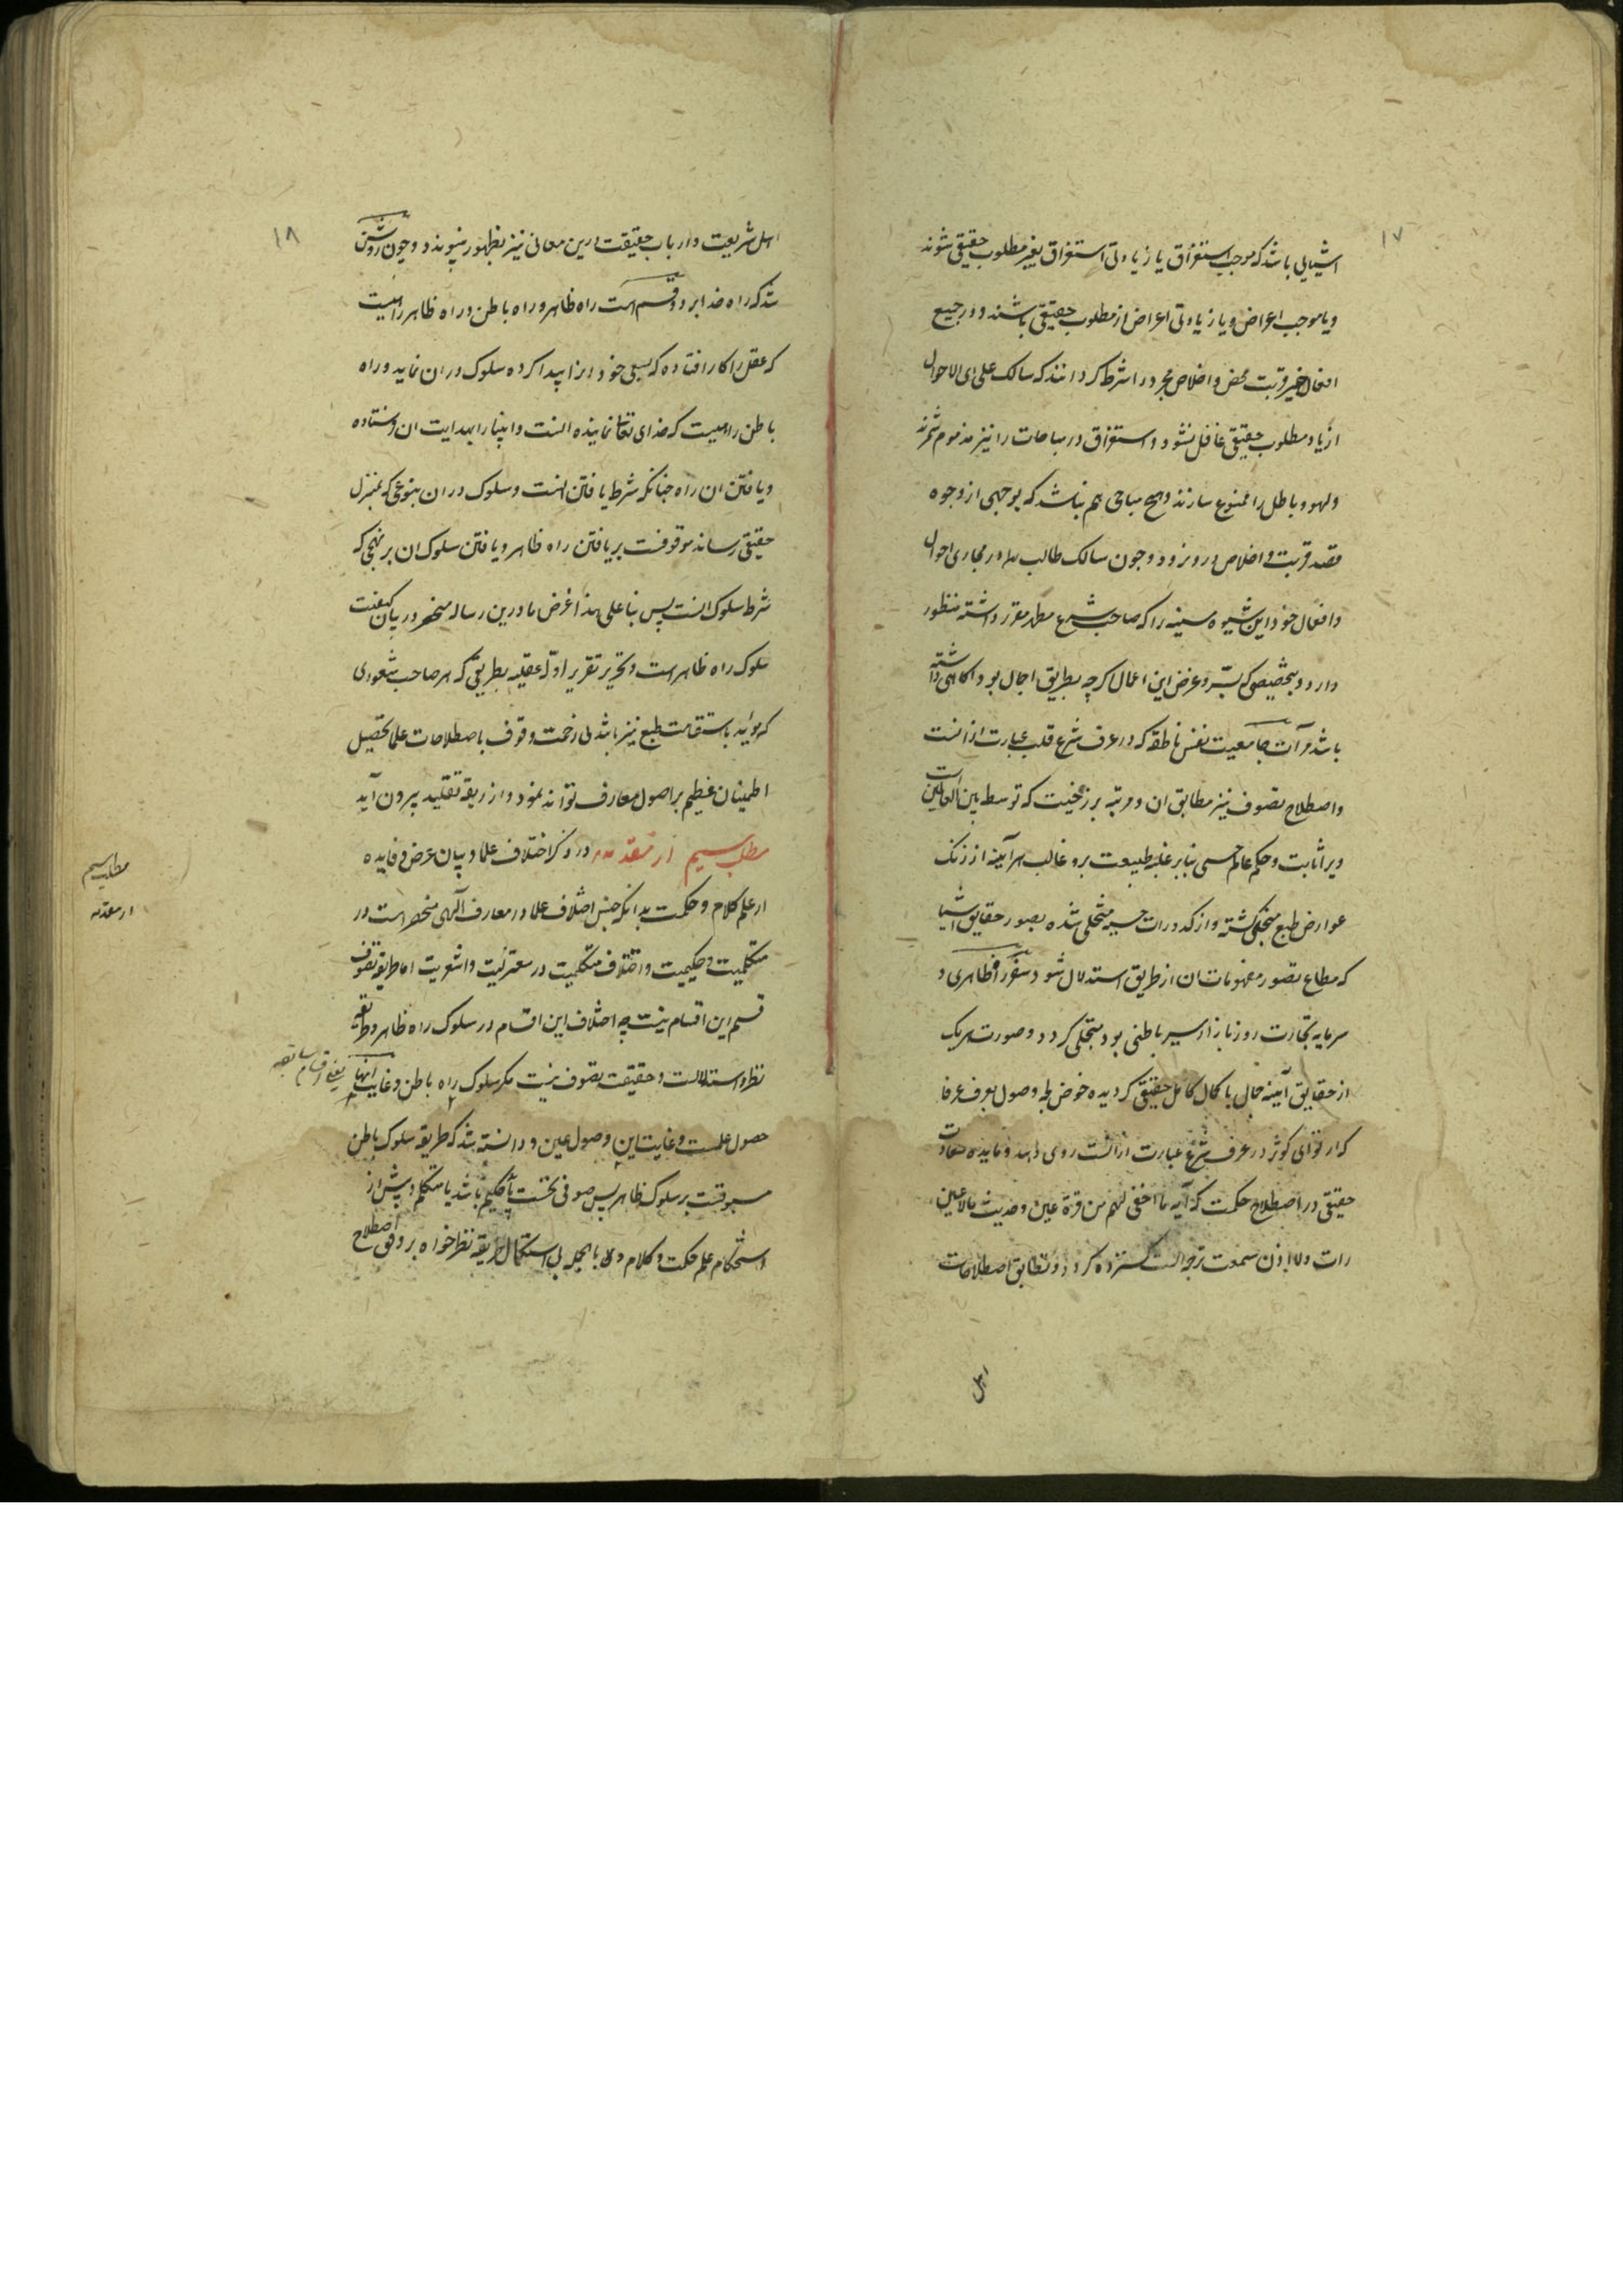 ۱۷
اشیایی باشد که موجب استغراق یا زیادتی استغراق بغیر مطلوب حقیقی شوند
و یا موجب اعراض و یا زیادتی اعراض از مطلوب حقیقی باشند و در جمیع
افعال خیر قربت محض و اخلاص مجرد را شرط کردانند که سالک علی ای الاحوال
از یاد مطلوب حقیقی غافل نشود و استغراق در مباحات را نیز مذموم شمرند
و لهو و باطل را ممنوع سازند و هیچ مباحی هم نباشد که بوجهی از وجوه
قصد قربت و اخلاص درو نرود و چون سالک طالب در مجاری احوال
و افعال خود این شیوه سنیه را که صاحب شرع مطهر مقرر داشته منظور
دارد و بتخصیص که بسرّ و غرض این اعمال اکرچه بطریق اجمال بود آکاهی داشته
باشد مرآت جامعیت نفس ناطقه که در عرف شرع قلب عبارت ازانست
و اصطلاح تصوف نیز مطابق ان و مرتبه برزخیت که توسط بین العالمین است
ویرا ثابت و حکم عالم حسی بنابر غلبه طبیعت برو غالب هرآینه از زنک
عوارض طبع منجلی کشته و از کدورات حسیه متخلی شده بصور حقایق اشیا
که مطاع تصور مفهومات ان از طریق استدلال شود سفر ظاهری و
سرمایه تجارت روز بازار سیر باطنی بود متجلی کردد و صورت هریک
از حقایق آیینه جمالی با کمال کامل حقیقی کردیده خوض لجه وصول بعرف عرفا
که ارتوای کوثر در عرف شرع عبارت ازانست روی دهد و مایده سعادت
حقیقی در اصطلاح حکمت که آیه ما اخفی لهم من قرة عین و حدیث مالا عین
رات ولا اذن سمعت ترجمه انست کسترده کردد و تطابق اصطلاحات
اهل
۱۸
اهل شریعت و ارباب حقیقت درین معانی نیز بظهور پیوندد و چون روشن
شد که راه خدا بر دو قسم است راه ظاهر و راه باطن و راه ظاهر راهیست
که عقل را کار افتاده که بسعی خود انرا پیدا کرده سلوک دران نماید و راه
باطن راهیست که خدای تعالی نماینده انست و انبیا را بهدایت ان فرستاده
و یافتن ان راه چنانکه شرط یافتن انست و سلوک دران بنوعی که بمنزل
حقیقی رساند موقوفست بر یافتن راه ظاهر و یافتن سلوک ان بر نهجی که
شرط سلوک انست پس بنا علی هذا غرض ما درین رساله منحصر در بیان کیفیت
سلوک راه ظاهر است و تحریر تقریر ادلّه عقلیه بطریقی که هر صاحب شعوری
که مؤید باستقامت طبع نیز باشد بی زحمت وقوف باصطلاحات علما تحصیل
اطمینان عظیم بر اصول معارف تواند نمود و از ربقه تقلید بیرون آید
مطلب سیم از مقدمه در ذکر اختلاف علما و بیان غرض و فایده
از علم کلام و حکمت بدانکه جنس اختلاف علما در معارف الهی منحصر است در
متکلمیت و حکیمیت و اختلاف متکلمیت در معتزلیت و اشعریت اما طریقه تصوف
قسیم این اقسام نیست چه اختلاف این اقسام در سلوک راه ظاهر و طریقه
نظر و استدلالست و حقیقت تصوف نیست مکر سلوک راه باطن و غایت انها
یعنی اقسام سابقه
حصول علمست و غایت این وصول عین و دانسته شد که طریقه سلوک باطن
مسبوقست بر سلوک ظاهر پس صوفی نخست یا حکیم باشد یا متکلم و پیش از
استحکام علم حکمت و کلام و بالجمله بی استکمال طریقه نظر خواه بر وفق اصطلاح
مطلب سیم
از مقدمه